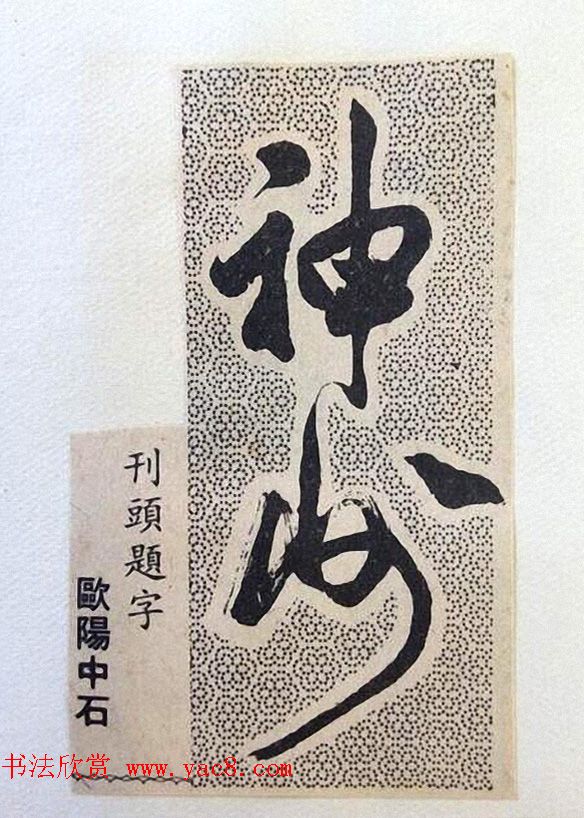 神州
刊頭題字
歐陽中石
书法欣赏 www.yac8.com